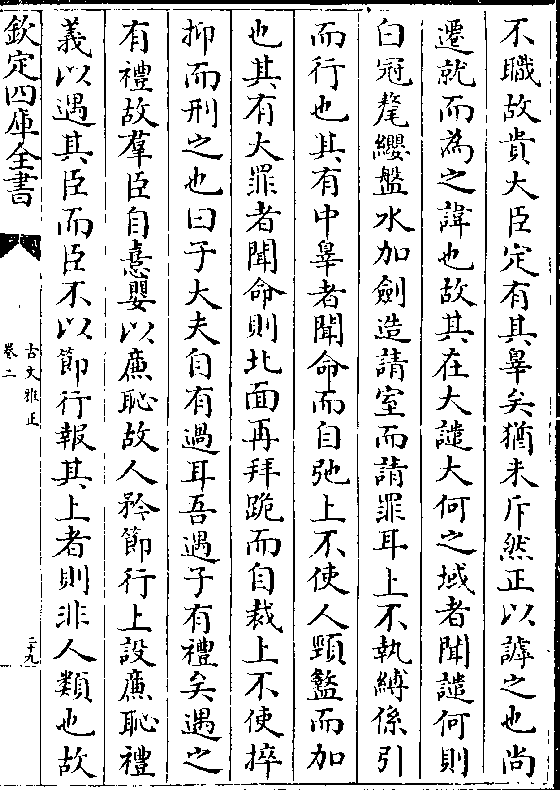 不職故貴大臣定有其辠矣猶未斥然正以謼之也尚
遷就而為之諱也故其在大譴大何之域者聞譴何則
白冠氂纓盤水加劍造請室而請罪耳上不執縛係引
而行也其有中辠者聞命而自弛上不使人頸盭而加
也其有大罪者聞命則北面再拜跪而自裁上不使捽
抑而刑之也曰子大夫自有過耳吾遇子有禮矣遇之
有禮故羣臣自憙嬰以廉恥故人矜節行上設廉恥禮
義以遇其臣而臣不以節行報其上者則非人類也故
欽定四庫全書
古文雅正
卷二
二十九